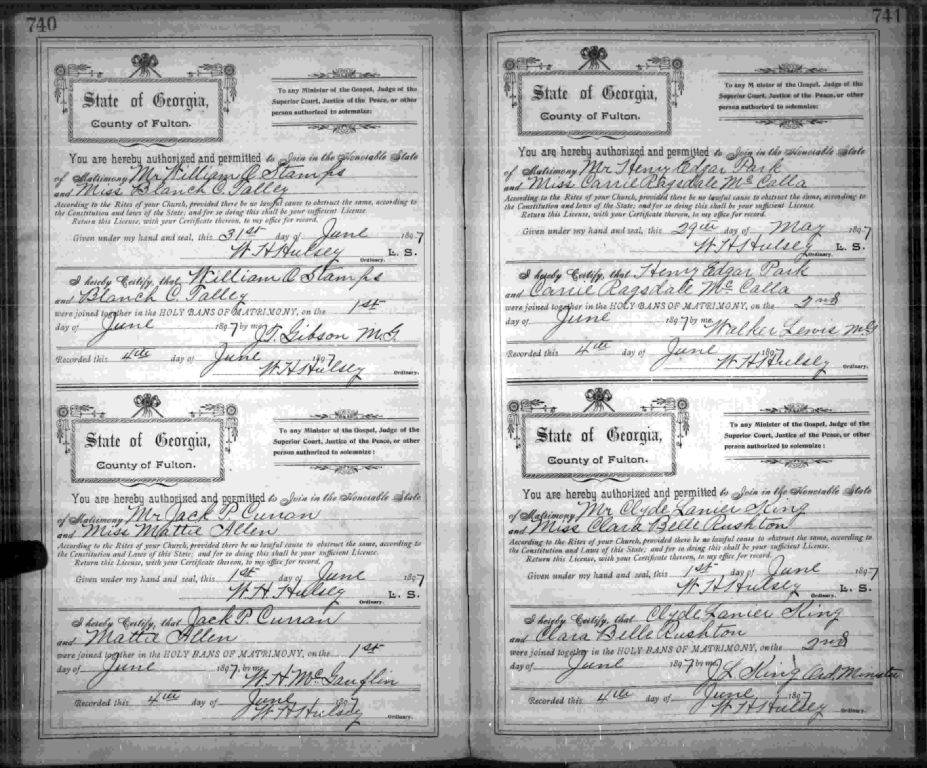 740
State of Georgia,
County of Fulton.
To any Minister of the Gospel, Judge of the
Superior Court, Justice of the Peace, or other
person authorized to solemnize:
You are hereby authorized and permitted to Join in the Honorable State
of Matrimony Mr William O Stamps
and Miss Blanch C. Talley
According to the Rites of your Church, provided there be no lawful cause to obstruct the same, according to
the Constitution and laws of the State; and for so doing this shall be your sufficient License.
Return this License, with your Certificate thereon, to my office for record.
Given under my hand and seal, this 31st day of June 1897
W H Hulsey L. S.
Ordinary.
I hereby Certify, that William O Stamps
and Blanch C Talley
were joined together in the HOLY BANS OF MATRIMONY, on the 1st
day of June 1897 by me,
J. T. Gibson M.G.
Recorded this 4th day of June 1897
W H Hulsey
Ordinary.
State of Georgia,
County of Fulton.
To any Minister of the Gospel, Judge of the
Superior Court, Justice of the Peace, or other
person authorized to solemnize:
You are hereby authorized and permitted to Join in the Honorable State
of Matrimony Mr Jack P Curran
and Miss Mattie Allen
According to the Rites of your Church, provided there be no lawful cause to obstruct the same, according to
the Constitution and Laws of this State; and for so doing this shall be your sufficient License.
Return this License, with your Certificate thereon, to my office for record.
Given under my hand and seal, this 1st day of June 1897
W. H. Hulsey L. S.
Ordinary.
I hereby Certify, that Jack P Curran
and Mattie Allen
were joined together in the HOLY BANS OF MATRIMONY, on the 1st
day of June 1897 by me
W. H. Mc
Recorded this 4th day of June 1897
W H Hulsey
Ordinary.
741
State of Georgia,
County of Fulton.
To any Minister of the Gospel, Judge of the
Superior Court, Justice of the Peace, or other
person authorized to solemnize:
You are hereby authorized and permitted to Join in the Honorable State
of Matrimony Mr Henry Edgar Park
and Miss Carrie Ragsdale Mc Calla
According to the Rites of your Church, provided there be no lawful cause to obstruct the same, according to
the Constitution and Laws of this State; and for so doing this shall be your sufficient License.
Return this License, with your Certificate thereon, to my office for record.
Given under my hand and seal, this 29th day of May 1897
W H Hulsey L. S.
Ordinary.
I hereby Certify, that Henry Edgar Park
and Carrie Ragsdale Mc Calla
were joined together in the HOLY BANS OF MATRIMONY, on the 2nd
day of June 1897 by me,
Walker Lewis M G
Recorded this 4th day of June 1897
W H Hulsey
Ordinary.
State of Georgia,
County of Fulton.
To any Minister of the Gospel, Judge of the
Superior Court, Justice of the Peace, or other
person authorized to solemnize:
You are hereby authorized and permitted to Join in the Honorable State
of Matrimony Mr Clyde Lanier King
and Miss Clara Belle Rushton
According to the Rites of your Church, provided there be no lawful cause to obstruct the same, according to
the Constitution and Laws of this State; and for so doing this shall be your sufficient License.
Return this License, with your Certificate thereon, to my office for record.
Given under my hand and seal, this 1st day of June 1897
W H Hulsey L. S.
Ordinary.
I hereby Certify, that Clyde Lanier King
and Clara Belle Rushton
were joined together in the HOLY BANS OF MATRIMONY, on the 2nd
day of June 1897 by me,
J L King Ord. Minister
Recorded this 4th day of June 1897
W H Hulsey
Ordinary.